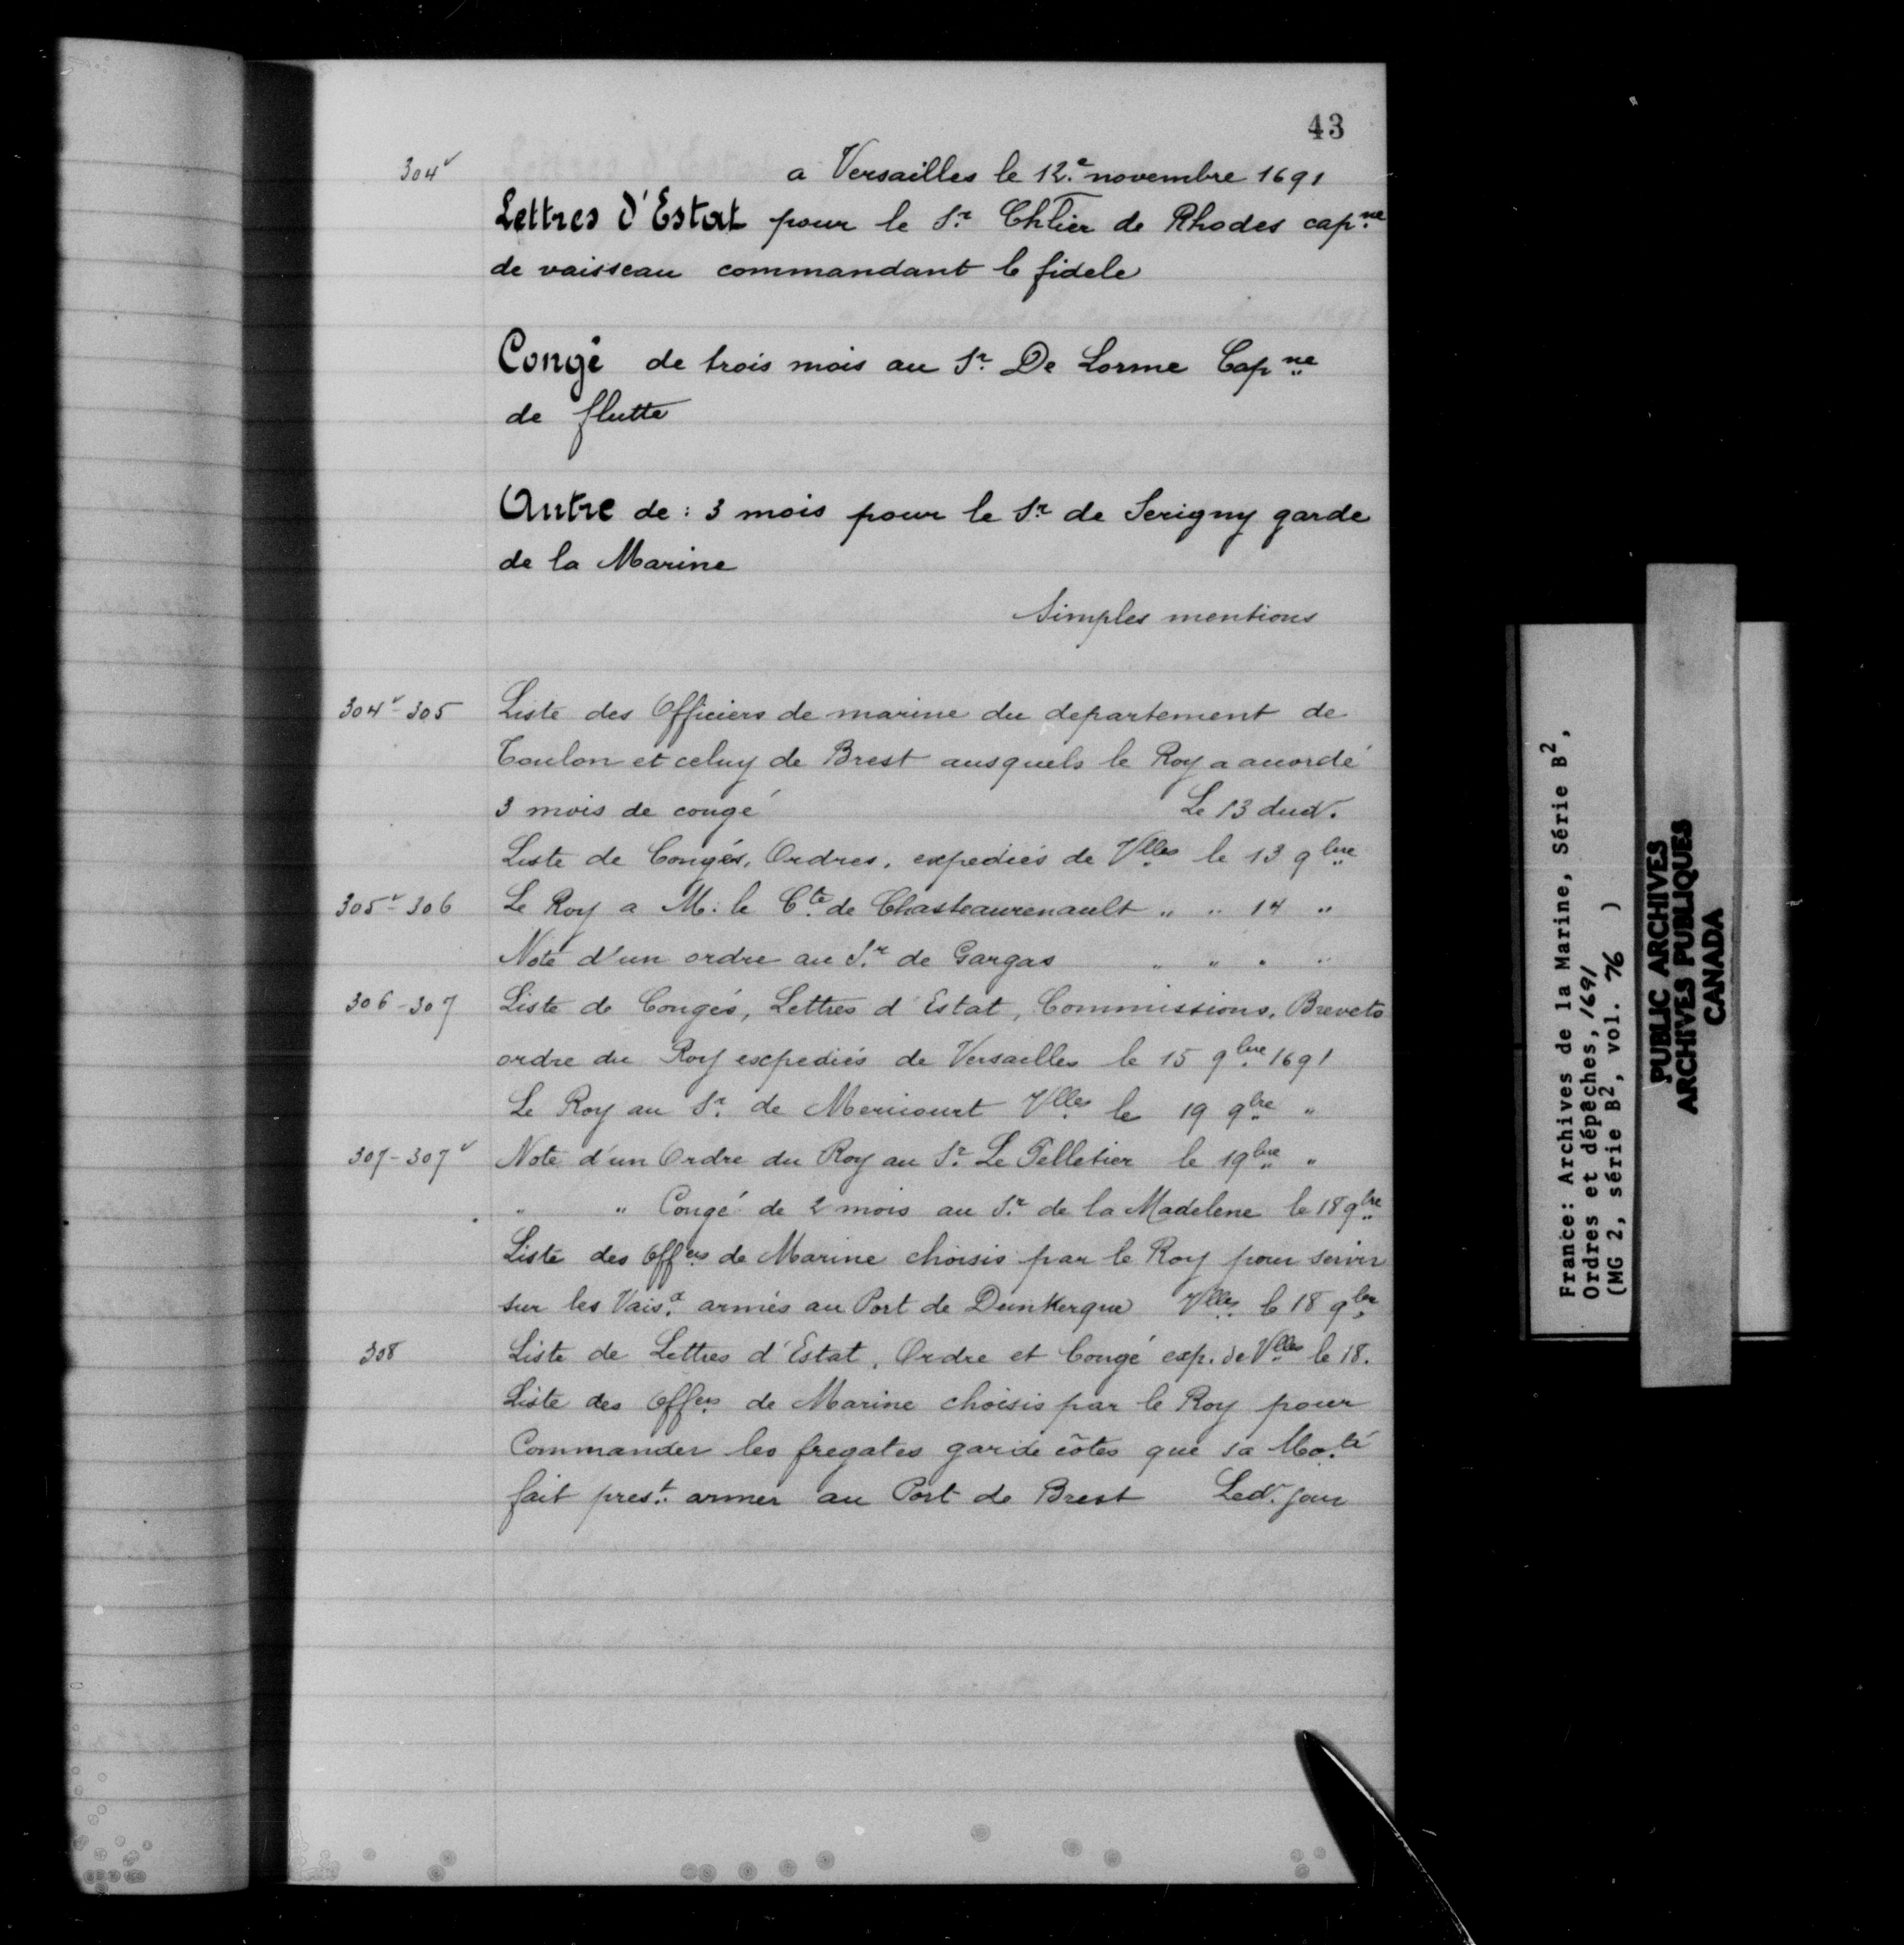 43
304v a Versailles le 12.e novembre 1691
Lettres d'Estat pour le Sr. Chlier de Rhodes cap.ne
de vaisseau commandant le fidele
Congé de trois mois au Sr. De Lorme Cap.ne
de flutte
Autre de : 3 mois pour le Sr. de Serigny garde
de la Marine
Simples mentions
304v-305 Liste des Officiers de marine du departement de
Toulon et celuy de Brest ausquels le Roy a acordé
3 mois de congé Le 13 dud.
Liste de Congés, Ordres, expediés de Vlles le 13 9bre
305v-306 Le Roy a M. le Cte. de Chasteaurenault " " 14 "
Note d'un ordre au Sr. de Gargas " " " "
306-307 Liste de Congés, Lettres d'Estat, Commissions, Brevets
ordre du Roy expediés de Versailles le 15 9bre 1691
Le Roy au Sr. de Mericourt Vlles le 19 9bre "
307-307v Note d'un Ordre du Roy au Sr. Le Pelletier le 19bre "
" " Congé de 2 mois au Sr. de la Madelene le 18 9bre
Liste des Offers de Marine choisis par le Roy pour servir
sur les Vaisx. armés au Port de Dunkerque Vlles le 18 9bre
308 Liste de Lettres d'Estat, Ordre et Congé exp. de Vlles le 18.
Liste des Offers de Marine choisis par le Roy pour
Commander les fregates garde côtes que sa Ma.té
fait prest. armer au Port de Brest Led. jour
France: Archives de la Marine, Série B2,
Ordres et dépêches, 1691
(MG 2, série B2, vol. 76 )
PUBLIC ARCHIVES
ARCHIVES PUBLIQUES
CANADA